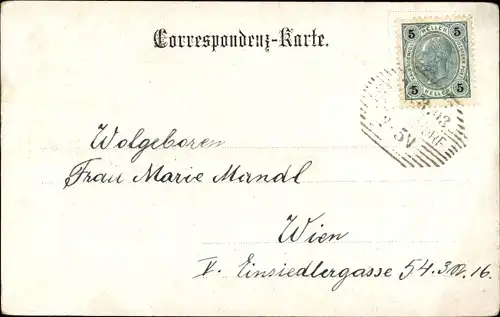 Correspondenz-Karte.
5 HELLER 5
5 HELLER 5
5V
Wolgeboren
Frau Marie Mandl
Wien
V. Einsiedlergasse 54. 16.